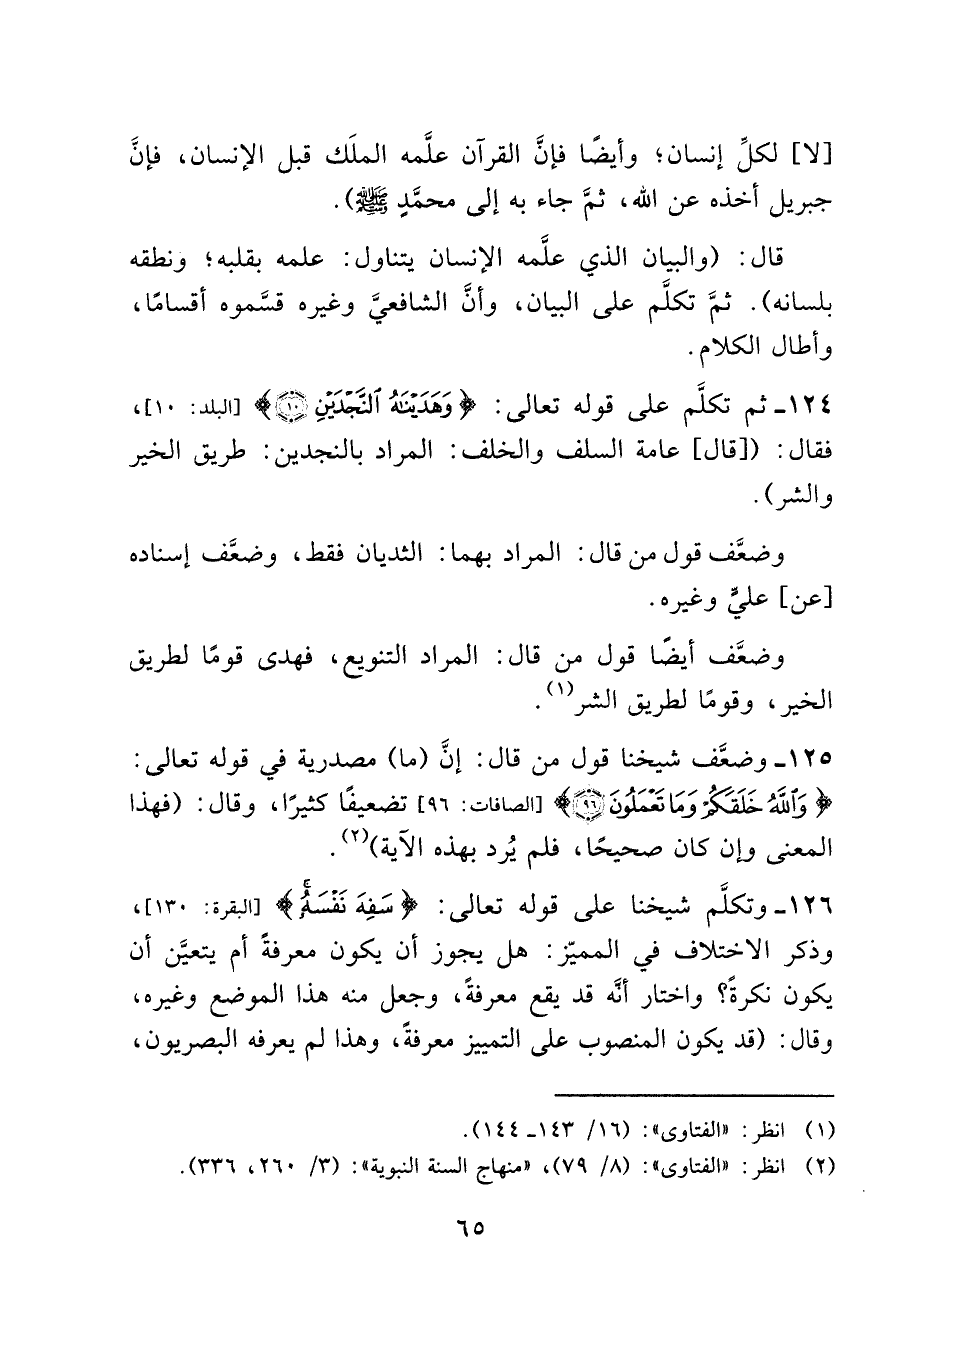 [لا] لكلِّ إنسان؛ وأيضًا فإنَّ القرآن علَّمه الملَك قبل الإنسان، فإنَّ
جبريل أخذه عن الله، ثمَّ جاء به إلى محمَّدٍ ﷺ).
قال: (والبيان الذي علَّمه الإنسان يتناول: علمه بقلبه؛ ونطقه
بلسانه). ثمَّ تكلَّم على البيان، وأنَّ الشافعيَّ وغيره قسَّموه أقسامًا،
وأطال الكلام.
١٢٤ـ ثم تكلَّم على قوله تعالى: ﴿وَهَدَيْنَٰهُ ٱلنَّجْدَيْنِ ١٠﴾ [البلد: ١٠]،
فقال: ([قال] عامة السلف والخلف: المراد بالنجدين: طريق الخير
والشر).
وضعَّف قول من قال: المراد بهما: الثديان فقط، وضعَّف إسناده
[عن] عليٍّ وغيره.
وضعَّف أيضًا قول من قال: المراد التنويع، فهدى قومًا لطريق
الخير، وقومًا لطريق الشر(١).
١٢٥ـ وضعَّف شيخنا قول من قال: إنَّ (ما) مصدرية في قوله تعالى:
﴿وَٱللَّهُ خَلَقَكُمْ وَمَا تَعْمَلُونَ ٩٦﴾ [الصافات: ٩٦] تضعيفًا كثيرًا، وقال: (فهذا
المعنى وإن كان صحيحًا، فلم يُرد بهذه الآية)(٢).
١٢٦ـ وتكلَّم شيخنا على قوله تعالى: ﴿سَفِهَ نَفْسَهُۥۚ﴾ [البقرة: ١٣٠]،
وذكر الاختلاف في المميّز: هل يجوز أن يكون معرفةً أم يتعيَّن أن
يكون نكرةً؟ واختار أنَّه قد يقع معرفةً، وجعل منه هذا الموضع وغيره،
وقال: (قد يكون المنصوب على التمييز معرفةً، وهذا لم يعرفه البصريون،
(١) انظر: «الفتاوى»: (١٦/ ١٤٣ـ ١٤٤).
(٢) انظر: «الفتاوى»: (٨/ ٧٩)، «منهاج السنة النبوية»: (٣/ ٢٦٠، ٣٣٦).
٦٥